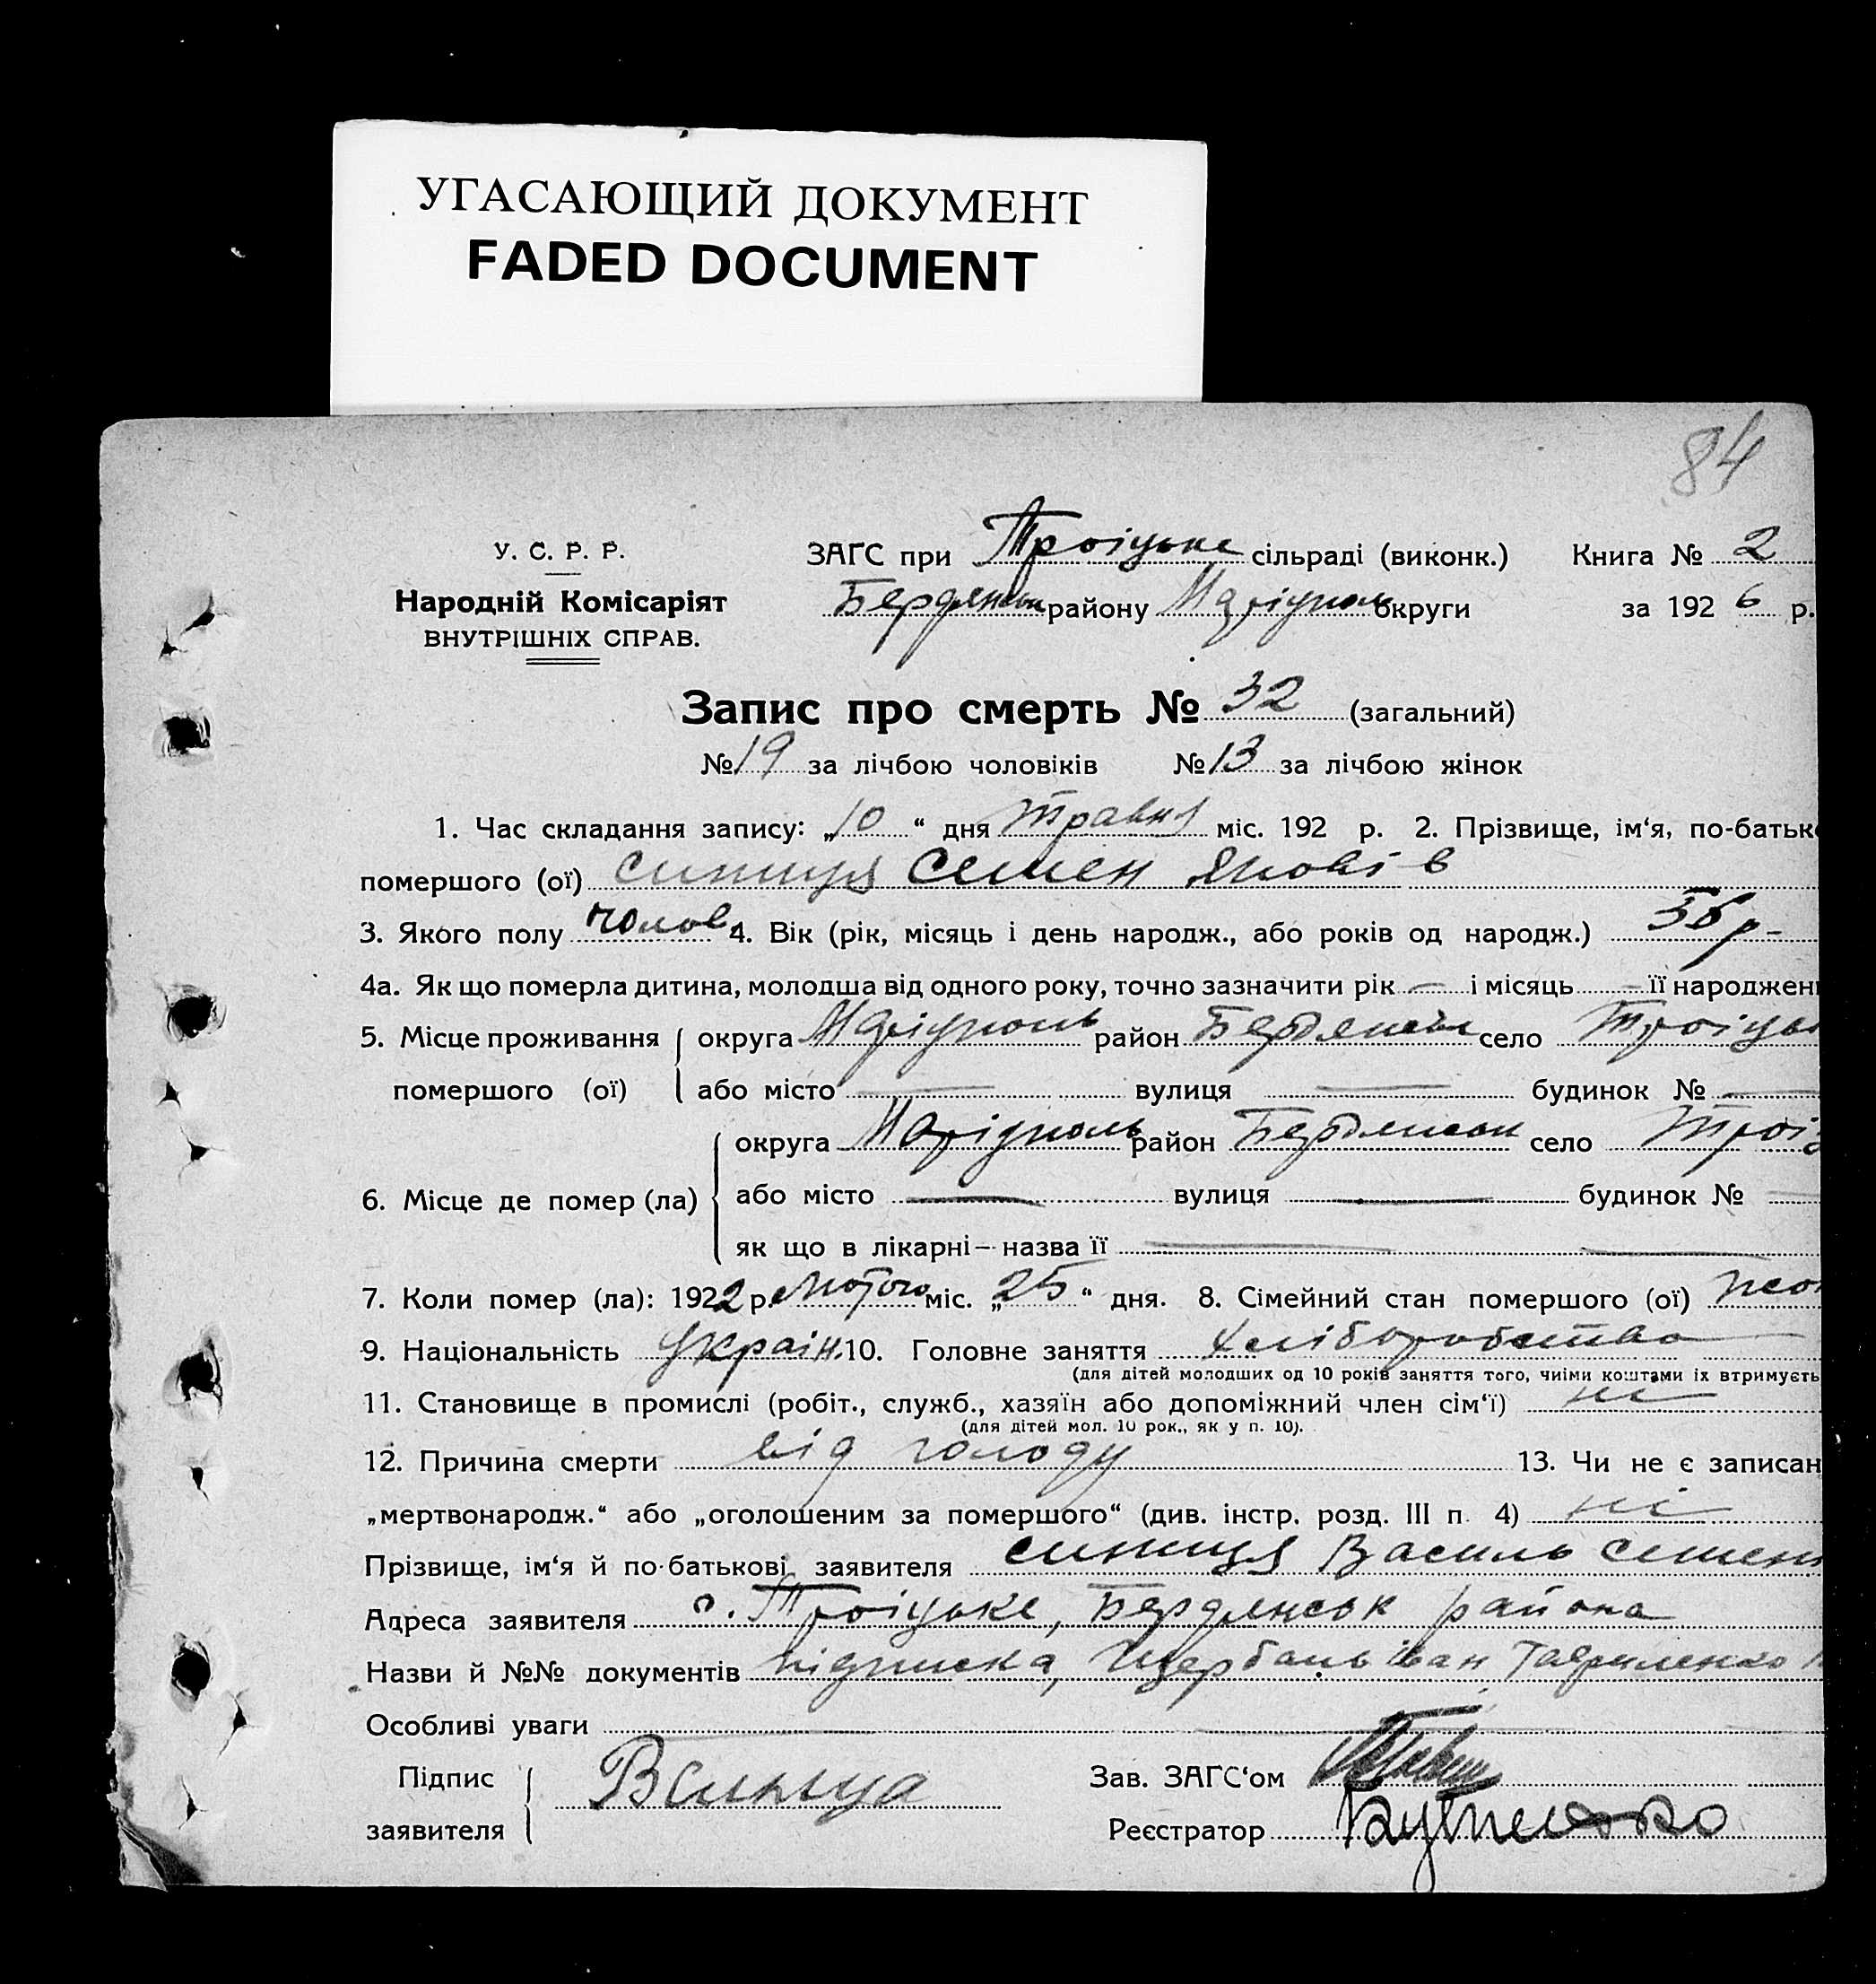 УГАСАЮЩИЙ ДОКУМЕНТ
FADED DOCUMENT
84
У. С. Р. Р.
Народній Комісаріят
ВНУТРІШНІХ СПРАВ.
ЗАГС при Троіцьке сільраді (виконк.) Книга № 2
Бердянськ району Маріуполь округи за 1926 р.
Запис про смерть № 32 (загальний)
№ 19 за лічбою чоловіків № 13 за лічбою жінок
1. Час складання запису: „10“ дня травня міс. 192 р. 2. Прізвище, ім‘я, по-батьк
помершого (ої) синиця Семен Якові в
3. Якого полу чолов 4. Вік (рік, місяць і день народж., або років од народж.)
4а. Як що померла дитина, молодша від одного року, точно зазначити рік — і місяць — її народжен
5. Місце проживання округа Маріуполь район Бердянськ село Троіць
помершого (ої) або місто — вулиця — будинок № —
округа Маріуполь район Бердянськ село Троіц
6. Місце де помер (ла) або місто — вулиця — будинок № —
як що в лікарні — назва її —
7. Коли помер (ла): 1922 р. Лютого міс. „25“ дня. 8. Сімейний стан помершого (ої)
9. Національність Украін. 10. Головне заняття хліборобство
(для дітей молодших од 10 років заняття того, чиїми коштами їх втримуєть
11. Становище в промислі (робіт., служб., хазяїн або допоміжний член сім‘ї) ні
(для дітей мол. 10 рок., як у п. 10).
12. Причина смерти від голоду 13. Чи не є записан
„мертвонародж.“ або „оголошеним за помершого“ (див. інстр. розд. III п. 4) ні
Прізвище, ім‘я й по-батькові заявителя синиця Василь Семен
Адреса заявителя с. Троіцьке, Бердянськ района
Назви й №№ документів підписка, Щербань іван Гавриленко
Особливі уваги
Підпис заявителя В Синиця
Зав. ЗАГС‘ом
Реєстратор